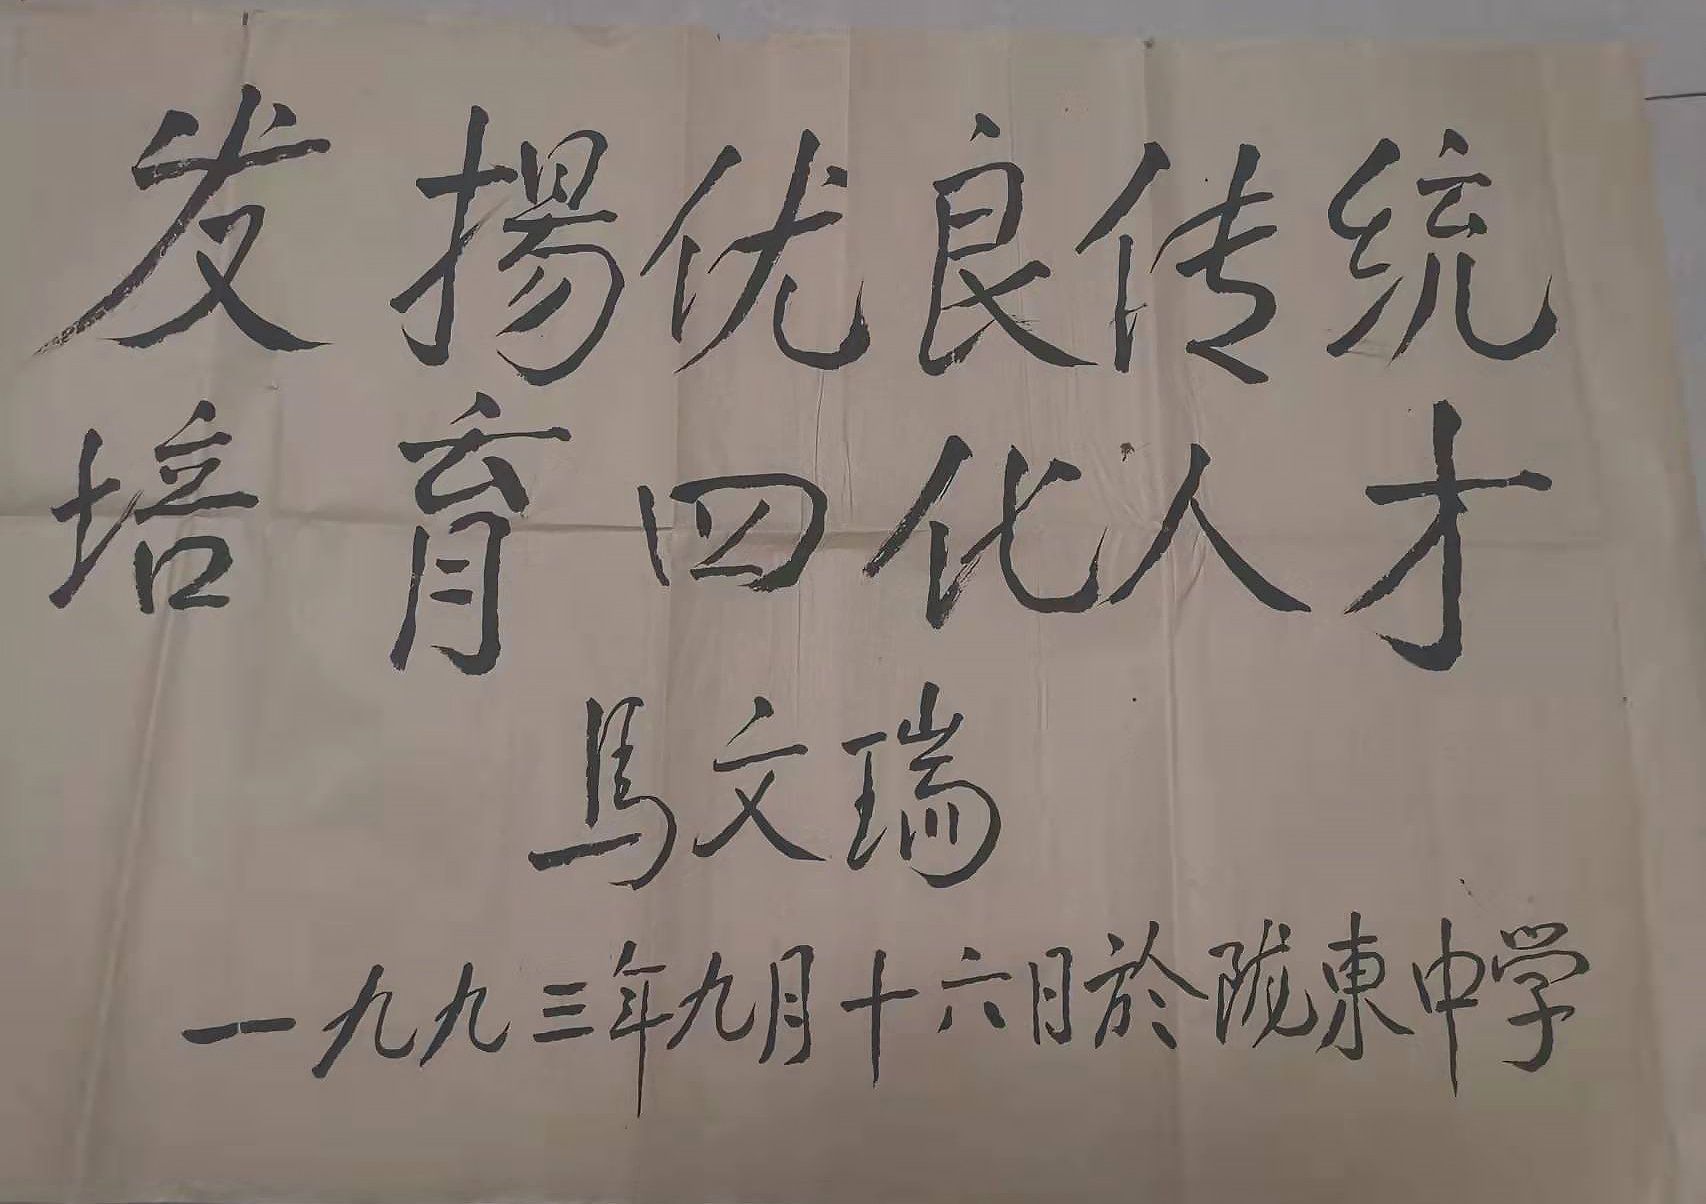 发揚优良传统
培育四化人才
馬文瑞
一九九三年九月十六日於陇東中学